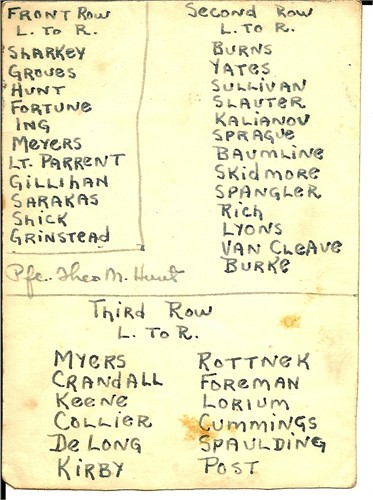 FRONT ROW
L. TO R.
SHARKEY
GROVES
HUNT
FORTUNE
ING
MEYERS
LT. PARRENT
GILLIHAN
SARAKAS
SHICK
GRINSTEAD
Pfc. Theo M. Hunt
SECOND ROW
L. TO R.
BURNS
YATES
SULLIVAN
SLAUTER
KALIANOV
SPRAGUE
BAUMLINE
SKIDMORE
SPANGLER
RICH
LYONS
VAN CLEAVE
BURKE
THIRD ROW
L. TO R.
MYERS
CRANDALL
KEENE
COLLIER
DE LONG
KIRBY
ROTTNEK
FOREMAN
LORIUM
CUMMINGS
SPAULDING
POST